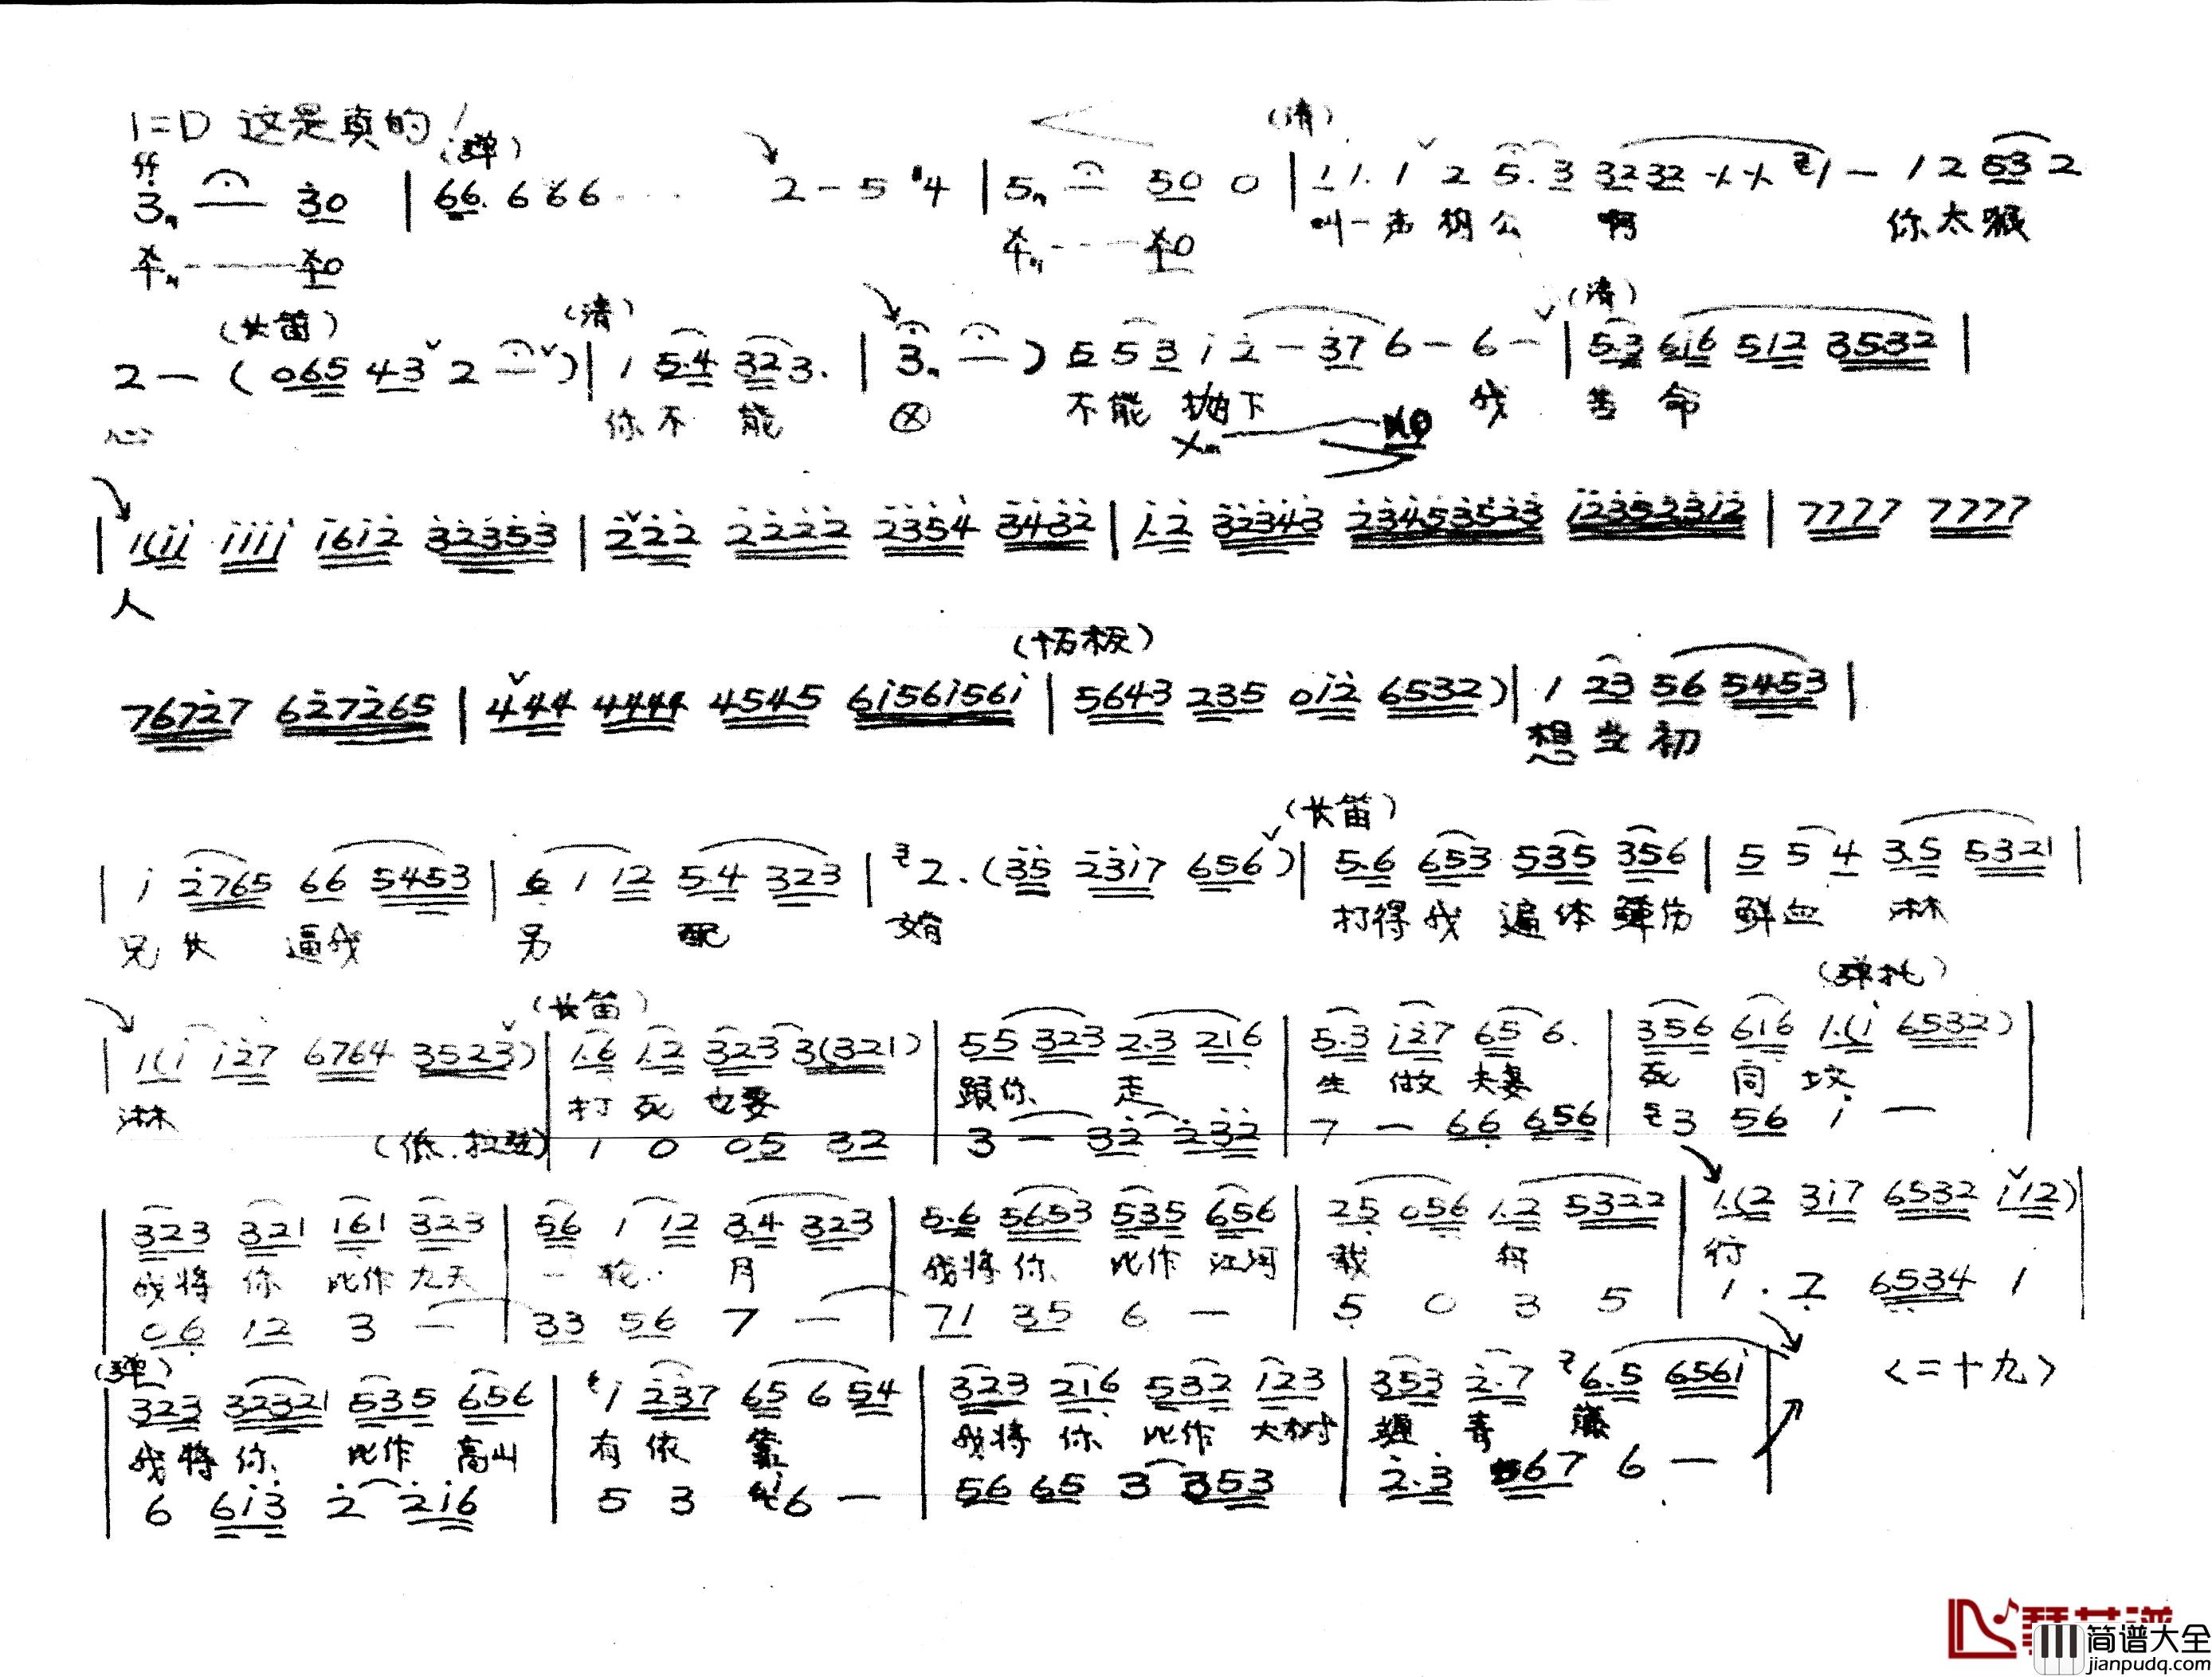 1=D 这是真的！
(弹) (清)
ff
3 — 30 | 66. 666 ... 2 — 5 #4 | 5 — 50 0 | 1 1. 1 2 5. 3 3232 — 1 2 53 2
叫一声相公 啊 你太狠
(长笛) (清) (清)
2 — ( 065 43 2 — ) | 1 5.4 323. | 3 — ) 5 53 i 2 — 37 6 — 6 — | 5.3 6i6 512 3532 |
心 你不 能 不能 抛下 我 苦 命
| 1(ii iiii i6i2 32353 | 222 2222 2354 3432 | i.2 32343 23453523 i23523i2 | 7777 7777
人
76727 627265 | 444 4444 4545 6i56i56i | 5643 235 0i2 6532 ) | 1 23 56 5453 |
想当初
(长笛)
| i 2765 66 5453 | 6 1 12 5.4 323 | 2. (35 23i7 656 ) | 5.6 653 535 356 | 5 5 4 3.5 5321 |
兄长 逼我 另 配 婚 打得我 遍体 伤 鲜血 淋
(长笛) (弹托)
| 1(i i27 6764 3523 ) | 1.6 1.2 323 3(321) | 55 323 2.3 216 | 5.3 i27 65 6. | 356 6i6 1.(i 6532) |
淋 打 死 也要 跟你 走 生 做 夫妻 死 同 坟
(低.拉弦) | 1 0 05 32 | 3 — 32 232 | 7 — 66 656 | 3 56 i — |
| 323 321 161 323 | 56 1 12 3.4 323 | 5.6 5653 535 656 | 25 056 1.2 5322 | 1.(2 3i7 6532 i12) |
我将 你 比作 九天 一 轮 月 我将 你 比作 江河 载 舟 行
| 06 12 3 — | 33 56 7 — | 71 35 6 — | 5 0 3 5 | 1 . 2 6534 1 |
(弹)
323 32321 535 656 | i 237 65 6 54 | 323 216 532 i23 | 353 2.7 6.5 656i | <二十九>
我将 你 比作 高山 有 依 靠 我将 你 比作 大树 缠 青 藤
| 6 6i3 2 2i6 | 5 3 6 — | 56 65 3 353 | 2.3 567 6 — |
简谱大全
jianpudq.com